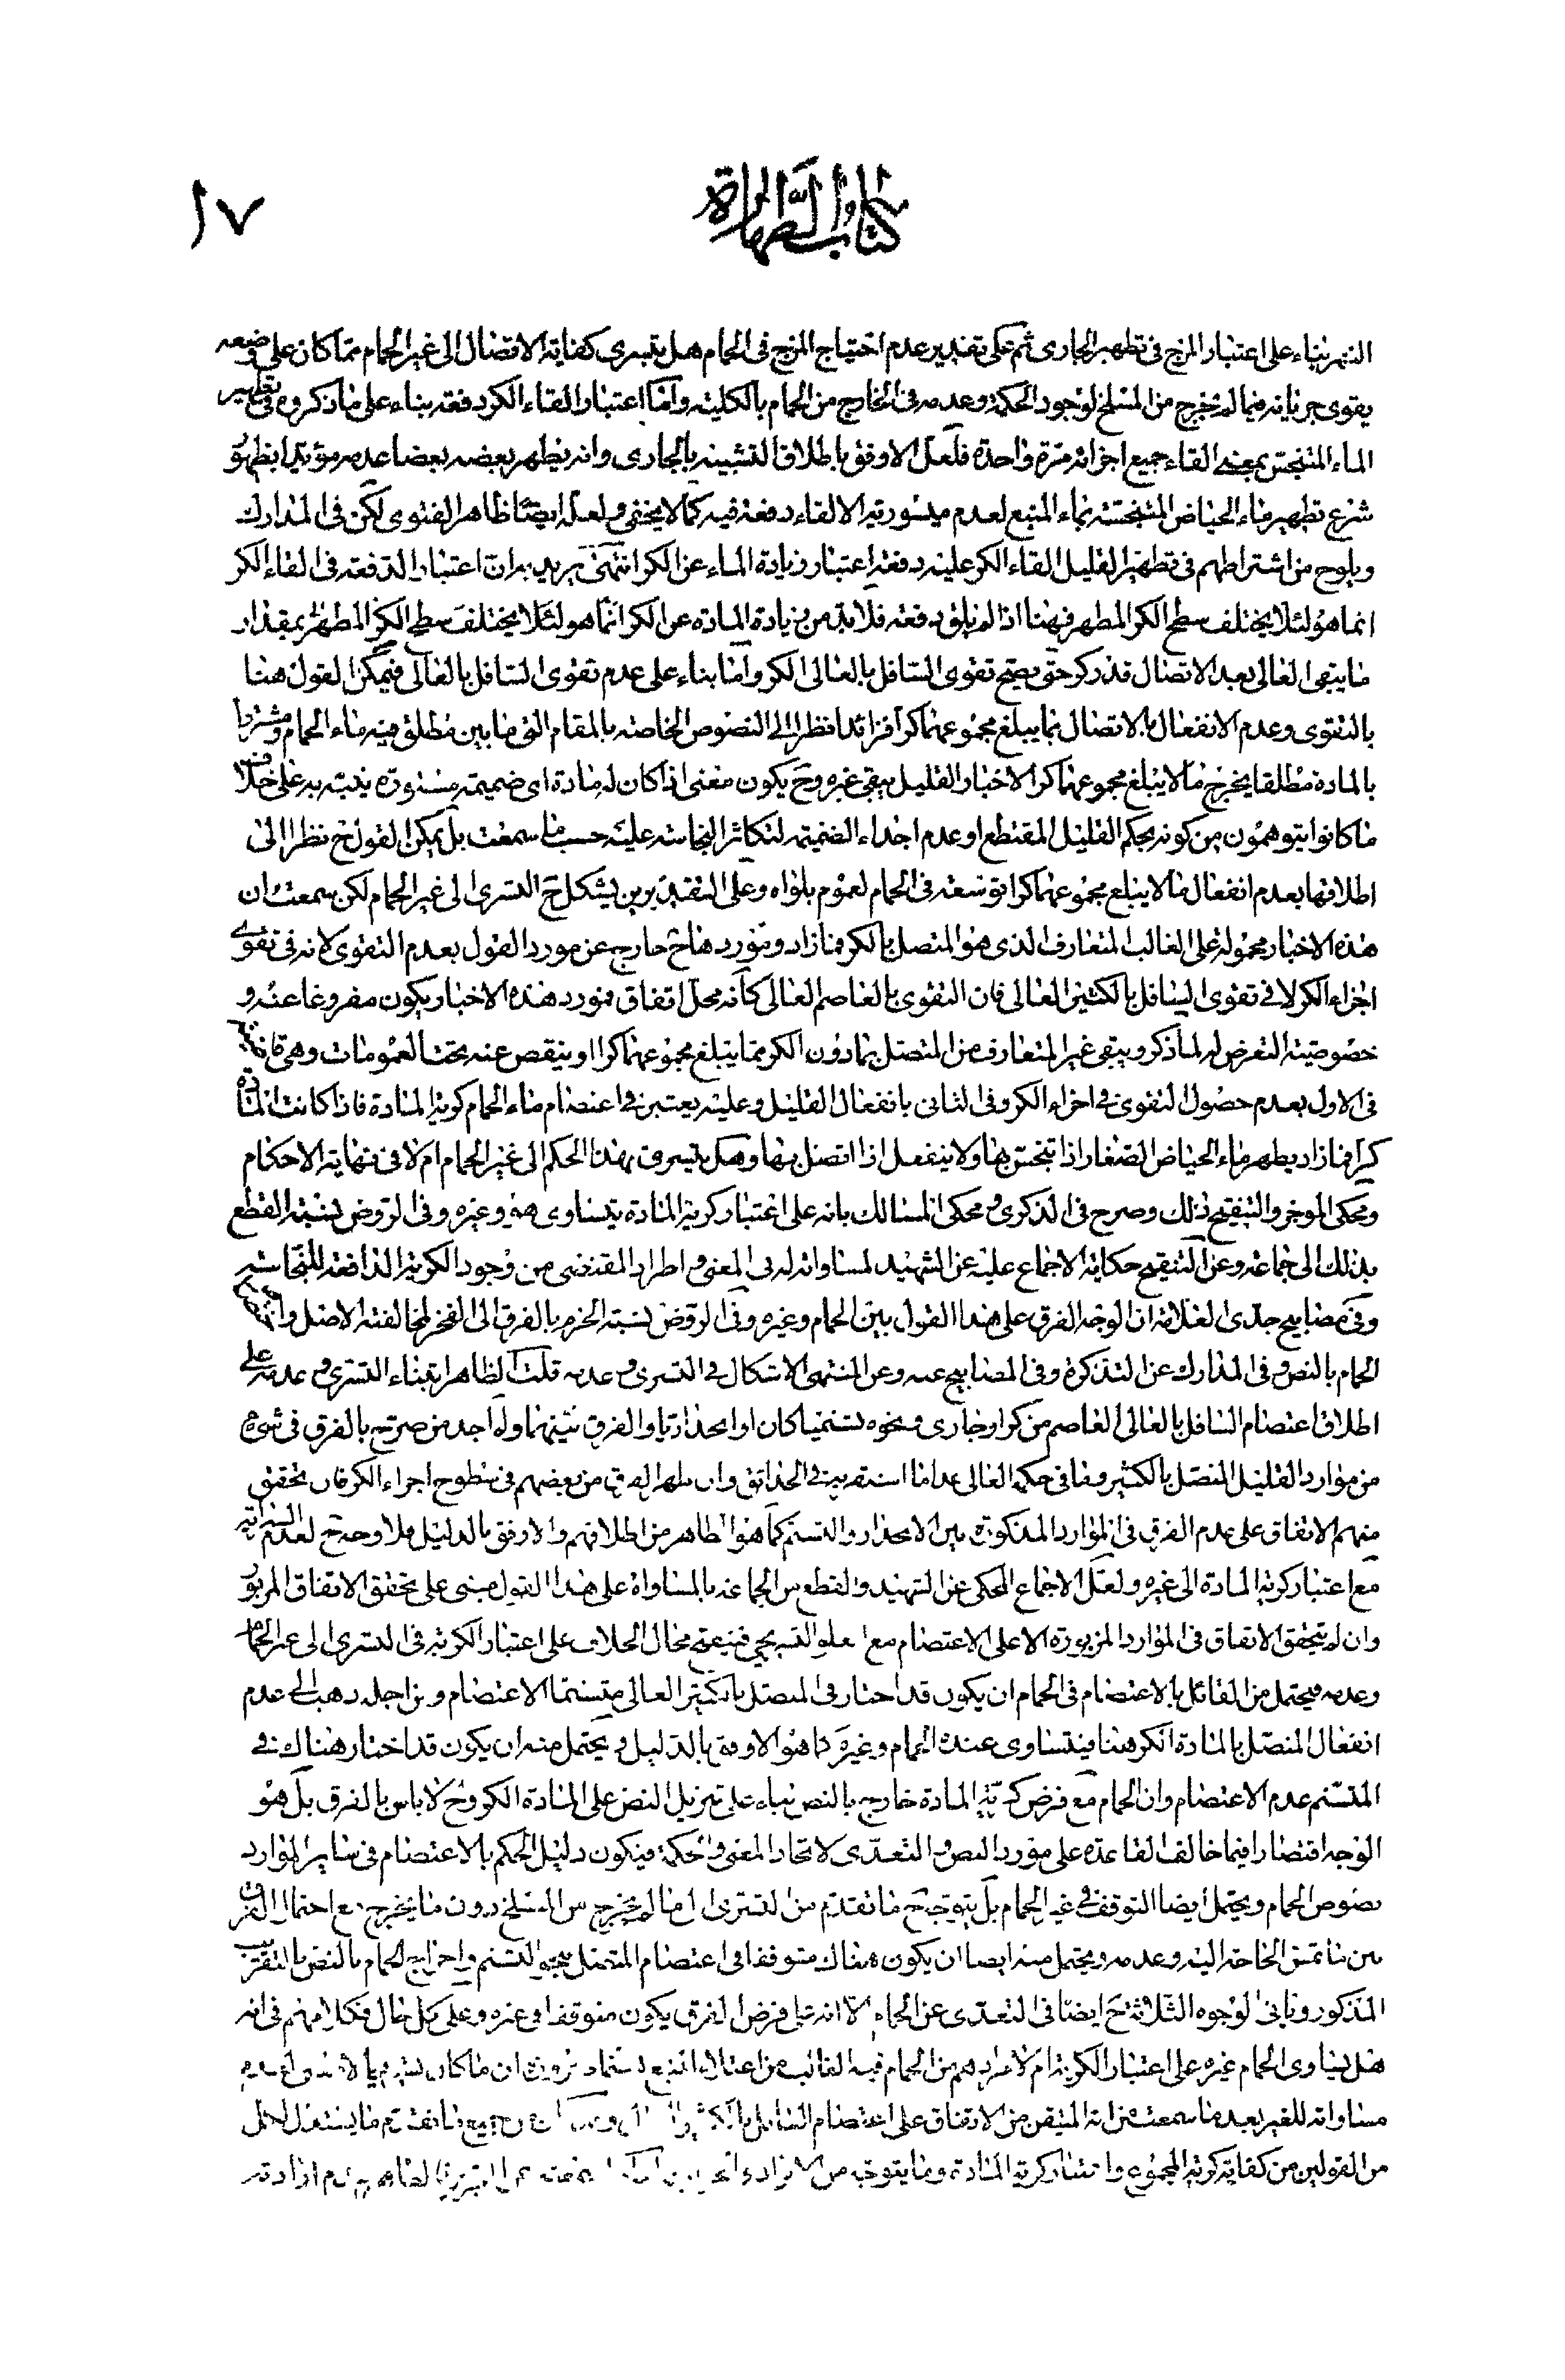 كتاب الطهارة
١٧
النهر بناء على اعتبار المزج فى تطهير الجارى ثم على تقدير عدم احتياج المزج فى الحمام هل يتسرى كفاية الاتصال الى غير الحمام مما كان على وضعه
يقوى جريانه فيما لم يخرج من المسلخ لوجود الحكمة وعدمه فى الخارج من الحمام بالكلية واما اعتبار القاء الكر دفعة بناء على ما ذكروه فى تطهير
الماء المتنجس بمعنى القاء جميع اجزائه مرة واحدة فلعل الاوفق باطلاق التشبيه بالجارى وانه يطهر بعضه بعضا عدمه مؤيدا بظهور
شرع تطهير ماء الحياض المتنجسة بماء المنبع لعدم ميسورية الالقاء دفعة فيه كما لا يخفى ولعله ايضا ظاهر الفتوى لكن فى المدارك
ويلوح من اشتراطهم فى تطهير القليل القاء الكر عليه دفعة اعتبار زيادة الماء عن الكر انتهى يريد به ان اعتبار الدفعة فى القاء الكر
انما هو لئلا يختلف سطح الكر المطهر فهنا اذا لم يلق دفعة فلا بد من زيادة المادة عن الكر انما هو لئلا يختلف سطح الكر المطهر بمقدار
ما يبقى العالى بعد الاتصال قدر كر حتى يصح تقوى السافل بالعالى الكر واما بناء على عدم تقوى السافل بالعالى فيمكن القول هنا
بالتقوى وعدم الانفعال بالاتصال بما يبلغ مجموعهما كرا فزائدا نظرا الى النصوص الخاصة بالمقام التى ما بين مطلق فيه ماء الحمام ومشترط
بالمادة مطلقا يخرج ما لا يبلغ مجموعهما كرا لاخبار القليل يبقى غيره وح يكون معنى اذا كان له مادة اى ضميمة مستورة ينبه به على خلاف
ما كانوا يتوهمون من كونه بحكم القليل المقتطع او عدم اجداء الضميمة لتكاثر النجاسة عليه حسب ما سمعت بل يمكن القول ح نظرا الى
اطلاقها بعدم انفعال ما لا يبلغ مجموعهما كرا توسعة فى الحمام لعموم بلواه وعلى التقديرين يشكل ح التسرى الى غير الحمام لكن سمعت ان
هذه الاخبار محمولة على الغالب المتعارف الذى هو المتصل بالكر فما زاد ومورد هاح خارج عن مورد القول بعدم التقوى لانه فى تقوى
اجزاء الكر لا فى تقوى السافل بالكثير العالى فان التقوى بالعاصم العالى كانه محل اتفاق فمورد هذه الاخبار يكون مفروغا عنه و
خصوصية التعرض له لما ذكر ويبقى غير المتعارف من المتصل بما دون الكر مما يبلغ مجموعهما كرا او ينقص عنه تحت العمومات وهى
فى الاول بعدم حصول التقوى فى اجزاء الكر وفى الثانى بانفعال القليل وعليه يعتبر فى اعتصام ماء الحمام كرية المادة فاذا كانت المادة
كرا فما زاد يطهر ماء الحياض الصغار اذا تنجس بها ولا ينفعل اذا اتصل بها وهل يتسرى بهذا الحكم الى غير الحمام ام لا فى نهاية الاحكام
ومحكى الموجز والتنقيح ذلك وصرح فى الذكرى ومحكى المسالك بانه على اعتبار كرية المادة يتساوى هو وغيره وفى الروض نسبة القطع
بذلك الى جماعة وعن التنقيح حكاية الاجماع عليه عن الشهيد لمساواته له فى المعنى واطراد المقتضى من وجود الكرية الدافعة للنجاسة
وفى مصابيح جدى العلامة ان الوجه الفرق على هذا القول بين الحمام وغيره وفى الروض نسبة الجزم بالفرق الى الفخر لمخالفته الاصل
الحمام بالنص وفى المدارك عن التذكرة وفى المصابيح عنه وعن المنتهى الاشكال فى التسرى وعدمه قلت الظاهر ابتناء التسرى وعدمه على
اطلاق اعتصام السافل بالعالى العاصم من كر او جارى ونحوه تسنيما كان او انحدارتيا والفرق بينهما ولم اجد من صرح بالفرق فى شىء
من موارد القليل المتصل بالكثير وما فى حكمه العالى عدا ما استقربه فى الحدائق وان ظهر الفرق من بعضهم فى سطوح اجزاء الكر فان تحقق
منهم الاتفاق على عدم الفرق فى الموارد المذكورة بين الانحدار والتسنم كما هو الظاهر من اطلاقهم والاوفق بالدليل فلا وجه ح لعدم السراية
مع اعتبار كرية المادة الى غيره ولعل الاجماع المحكى عن الشهيد والقطع من الجماعة بالمساواة على هذا القول مبنى على تحقق الاتفاق المزبور
وان لم يتحقق الاتفاق فى الموارد المزبورة الا على الاعتصام مع العلو التسريحى فيتجه مجال الخلاف على اعتبار الكرية فى التسرى الى غير الحمام
وعدمه فيحتمل من القائل بالاعتصام فى الحمام ان يكون قد اختار فى المتصل بالكثير العالى متسنما الاعتصام ومن اجله ذهب الى عدم
انفعال المتصل بالمادة الكر هنا فيتساوى عنده الحمام وغيره كما هو الاوفق بالدليل ويحتمل منه ان يكون قد اختار هناك فى
المتسنم عدم الاعتصام وان الحمام مع فرض كرية المادة خارج بالنص بناء على تنزيل النص على المادة الكر وح لا باس بالفرق بل هو
الوجه اقتصارا فيما خالف القاعدة على مورد النص والتعدى لاتحاد المعنى والحكمة فيكون دليل الحكم بالاعتصام فى سائر الموارد
نصوص الحمام ويحتمل ايضا التوقف فى غير الحمام بل يتوجه ح ما تقدم من التسرى الى ما لم يخرج من المسلخ دون ما يخرج مع احتمال الفرق
بين ما تمس الحاجة اليه وعدمه ويحتمل منه ايضا ان يكون هناك متوقفا فى اعتصام المتصل بنحو التسنم واخراج الحمام بالنص بالتقريب
المذكور وياتى الوجوه الثلاثة ح ايضا فى التعدى عن الحمام الا انه على فرض الفرق يكون متوقفا فى غيره وعلى كل حال فكلامهم فى انه
هل يساوى الحمام غيره على اعتبار الكرية ام لا مرادهم من الحمام فيه الغالب من اعتلاء المنبع
مساواته للغير بعد ما سمعت من انه المتيقن من الاتفاق على اعتصام السافل بالكثير جميع ما تقدم ما يستدل لكل
من القولين من كفاية كرية المجموع واعتبار كرية المادة وما يتوجه من الايراد